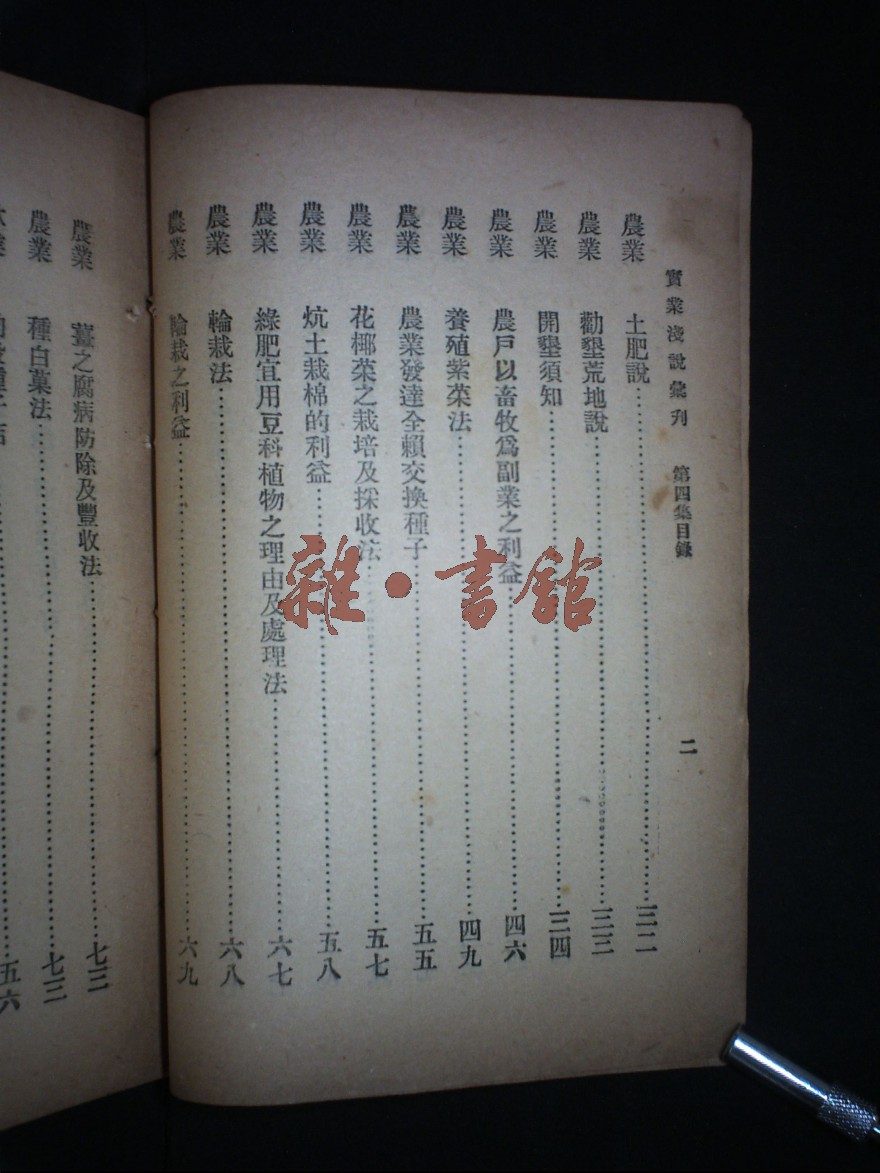 實業淺說彙刊　第四集目錄　二
農業　土肥說……三二
農業　勸墾荒地說……三三
農業　開墾須知……三四
農業　農戶以畜牧爲副業之利益……四六
農業　養殖紫菜法……四九
農業　農業發達全賴交換種子……五五
農業　花椰菜之栽培及採收法……五七
農業　炕土栽棉的利益……五八
農業　綠肥宜用豆科植物之理由及處理法……六七
農業　輪栽法……六八
農業　輪栽之利益……六九
農業　薑之腐病防除及豐收法……七三
農業　種白菓法……七三
雜·書館